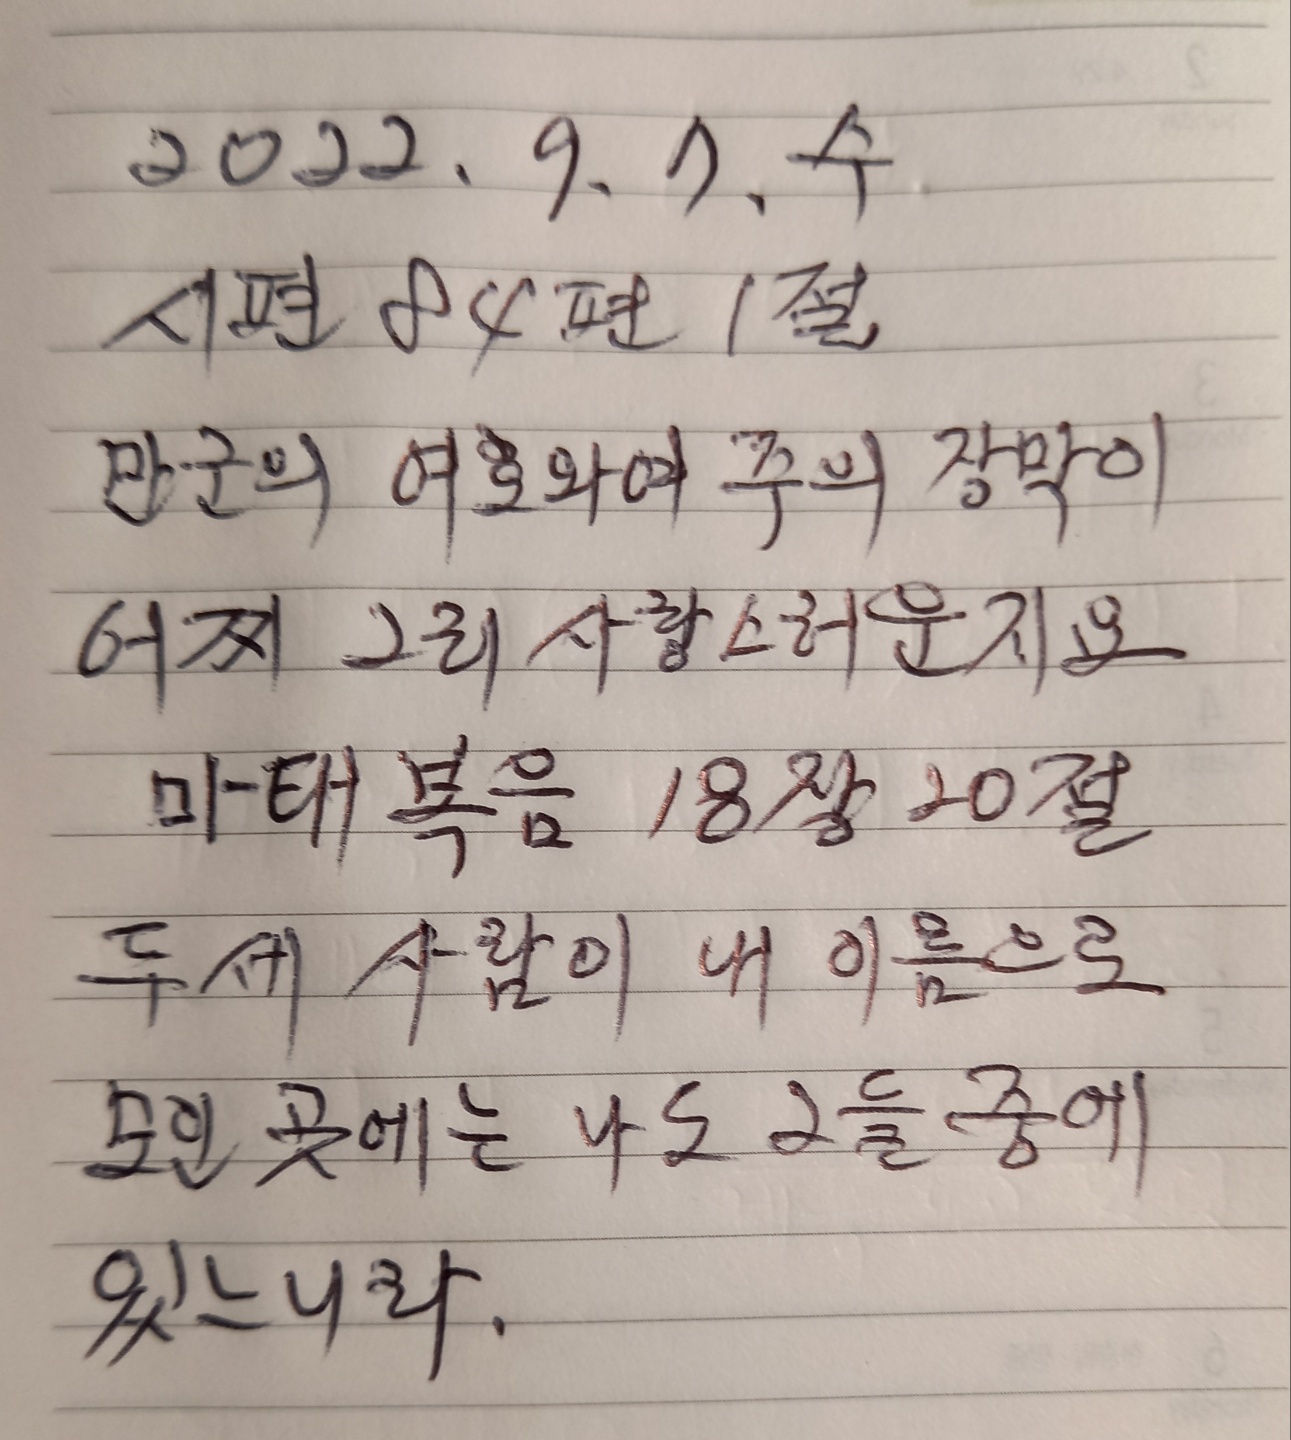 2022. 9. 7. 수
시편 84편 1절
만군의 여호와여 주의 장막이
어찌 그리 사랑스러운지요
마태복음 18장 20절
두세 사람이 내 이름으로
모인 곳에는 나도 그들 중에
있느니라.